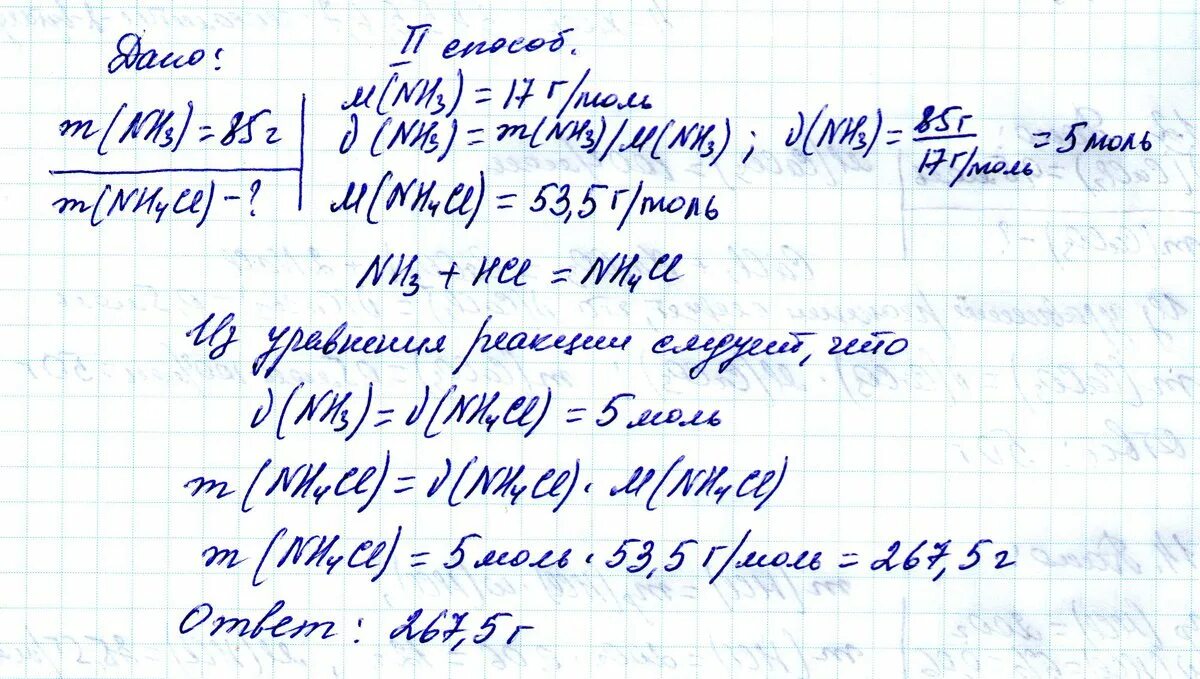 Дано:
m(NH₃) = 85г
m(NH₄Cl) - ?
II способ.
M(NH₃) = 17 г/моль
ν(NH₃) = m(NH₃)/M(NH₃); ν(NH₃) = 85г/17г/моль = 5 моль
M(NH₄Cl) = 53,5 г/моль
NH₃ + HCl = NH₄Cl
Из уравнения реакции следует, что
ν(NH₃) = ν(NH₄Cl) = 5 моль
m(NH₄Cl) = ν(NH₄Cl) · M(NH₄Cl)
m(NH₄Cl) = 5 моль · 53,5 г/моль = 267,5 г
Ответ: 267,5 г